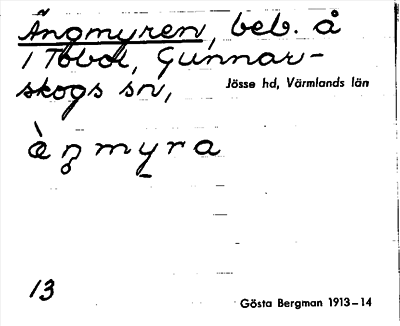 Ängmyren, beb. å
1 Tobol, Gunnar-
skogs sn,
Jösse hd, Värmlands län
àn̥myra
13
Gösta Bergman 1913–14